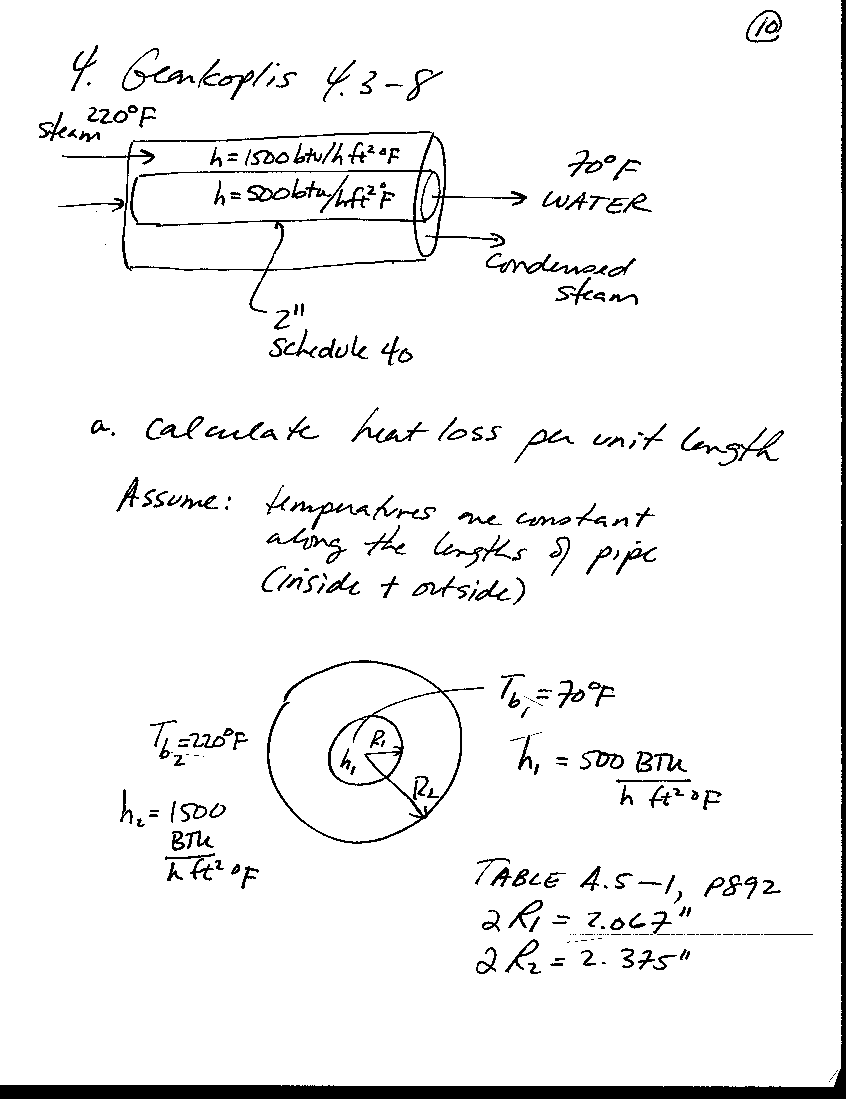 10
4. Geankoplis 4.3-8
220°F
steam
h=1500btu/hft²°F
h=500btu/hft²°F
70°F
WATER
condensed
steam
2"
schedule 40
a. calculate heat loss per unit length
Assume: temperatures are constant
along the lengths of pipe
(inside + outside)
Tb₁=70°F
Tb₂=220°F
R₁
h₁
R₂
h₁ = 500 BTU
h ft² °F
h₂=1500
BTU
h ft² °F
TABLE A.5-1, p892
2R₁ = 2.067"
2R₂ = 2.375"